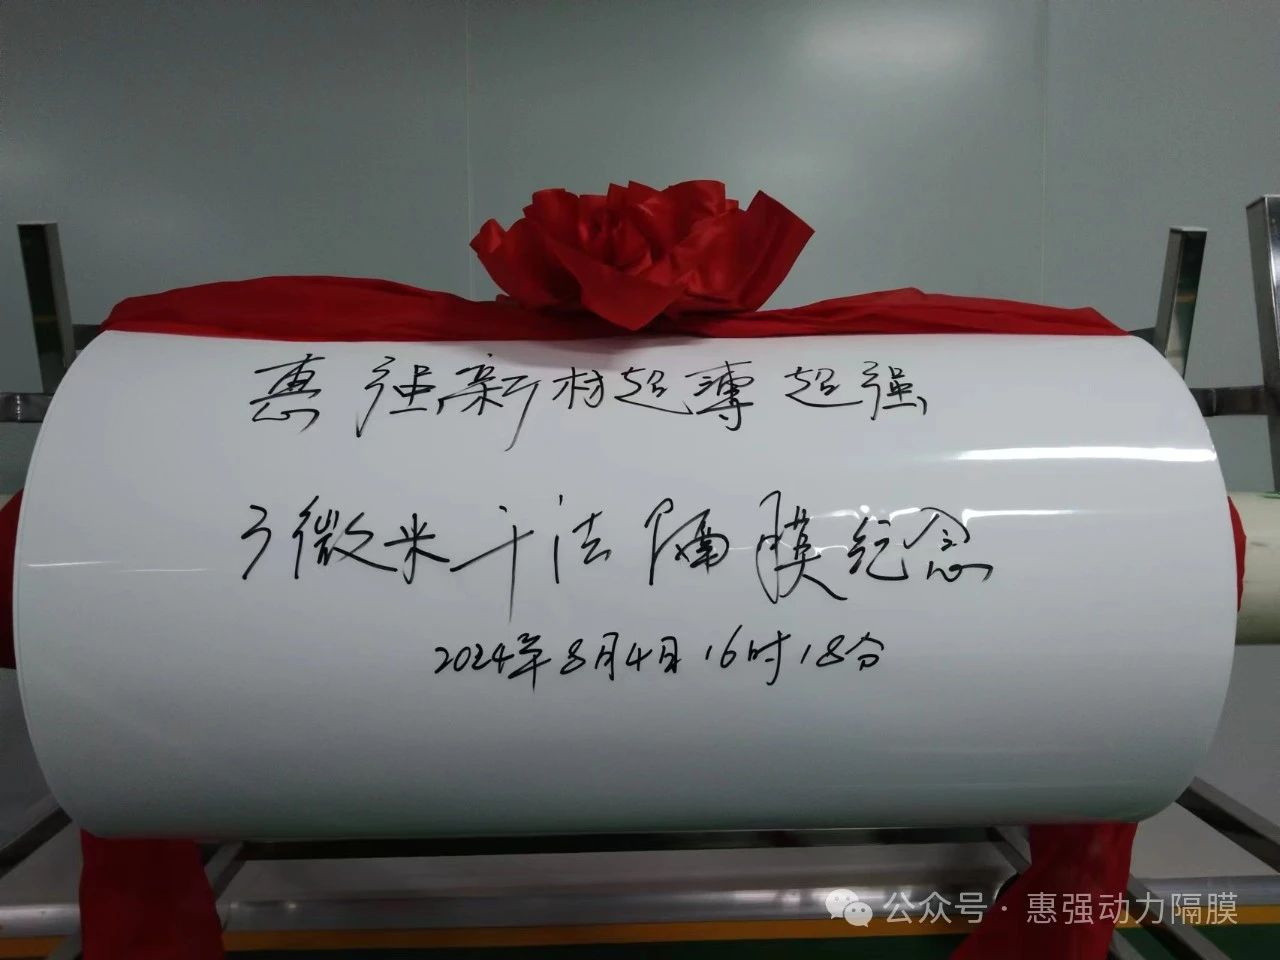 惠强新材超薄超强
3微米干法隔膜纪念
2024年8月4日16时18分
公众号·惠强动力隔膜